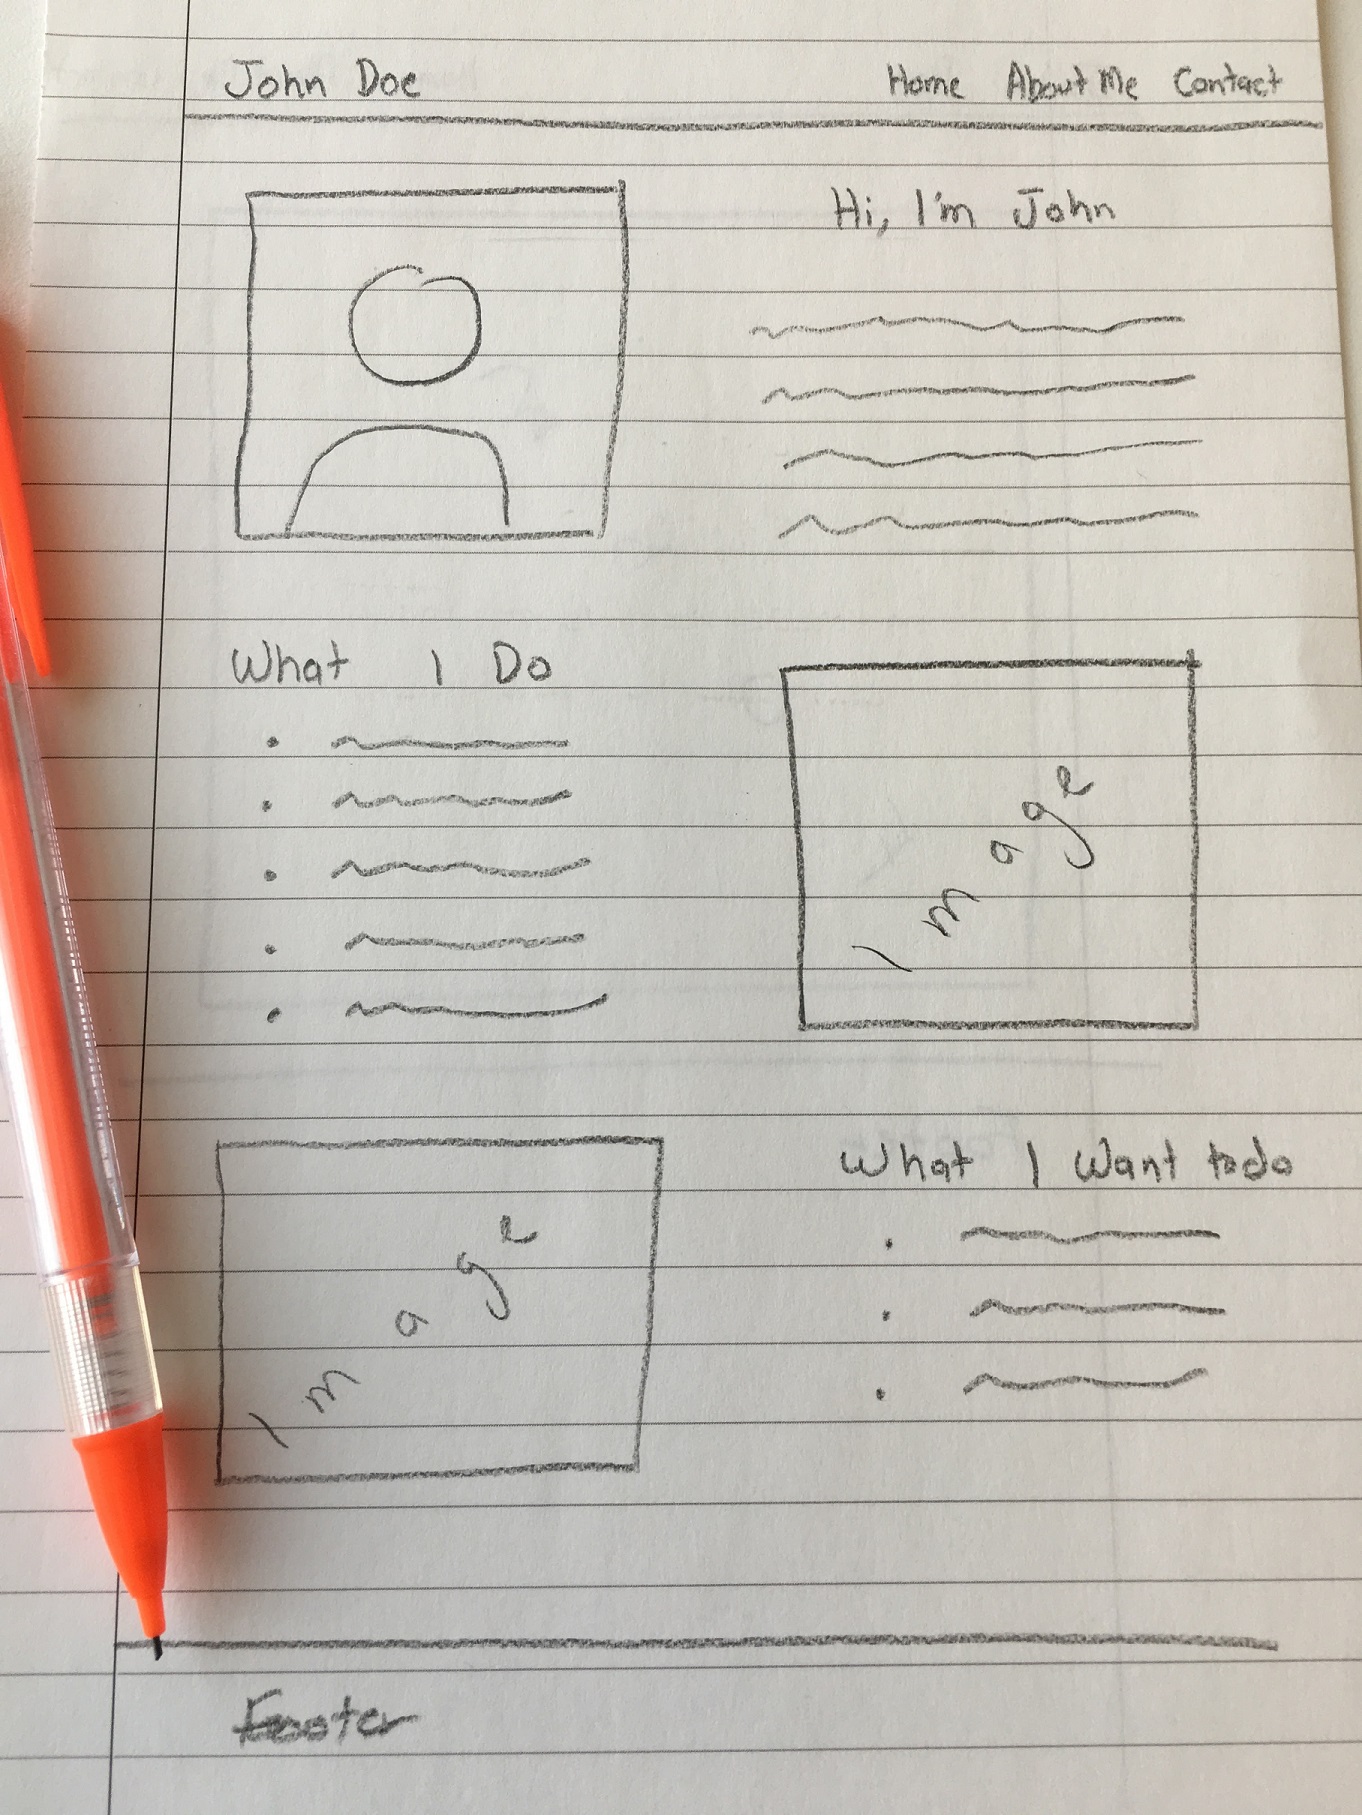 John Doe
Home About Me Contact
Hi, I'm John
What I Do
Image
Image
What I Want to do
Footer